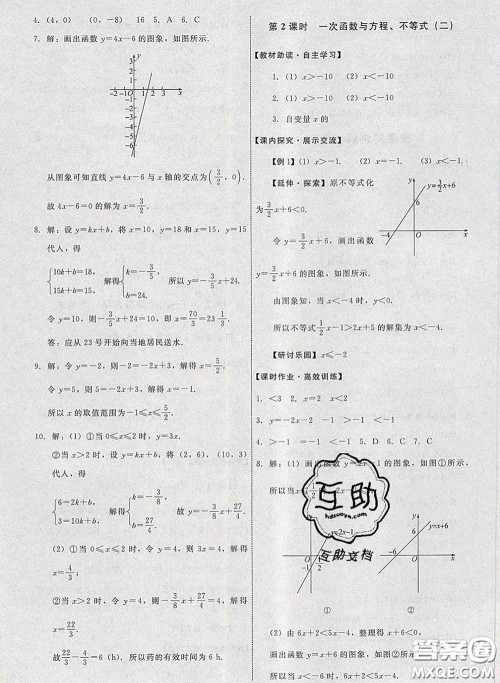 4. (4, 0) (0, -8) 16 5. A 6. A
7. 解: 画出函数 y=4x-6 的图象, 如图所示.
y
3
2
1
-2 -1 O 1 2 3 x
-1
-2
-3
-4
-5
-6
从图象可知直线 y=4x-6 与 x 轴的交点为(3/2, 0).
故 4x-6=0 的解为 x=3/2.
8. 解: 设 y=kx+b, 将 x=10, y=18 和 x=15, y=15
代入, 得
{10k+b=18, 15k+b=15, 解得{k=-3/5, b=24. 所以 y=-3/5x+24.
令 y=10, 则-3/5x+24=10, 解得 x=70/3=23 1/3.
答: 应从 23 号开始向当地居民送水.
9. 解: 令 y=5, 则 5=-2x+3, 解得 x=-1.
令 y=-2, 则-2=-2x+3, 解得 x=5/2.
所以 x 的取值范围为-1≤x≤5/2.
10. 解: (1) ①当 0≤x≤2 时, y=3x.
②当 x>2 时, 设 y=kx+b, 将(2, 6), (10, 3)
代入, 得
{6=2k+b, 3=10k+b, 解得{k=-3/8, b=27/4. 故 y=-3/8x+27/4.
(2) ①当 0≤x≤2 时, 令 y=4, 则 3x=4, 解得
x=4/3;
②当 x>2 时, 令 y=4, 则-3/8x+27/4=4, 解得
x=22/3.
故 22/3-4/3=6 (h). 所以药的有效时间为 6 h.
第 2 课时 一次函数与方程、不等式 (二)
【教材助读·自主学习】
1. (1) x>-10 (2) x<-10
2. (1) x>-10 (2) x<-10
3. 自变量 x 的
【课内探究·展示交流】
【例 1】(1) x>-1. (2) x=-1. (3) x<-1.
【延伸·探索】原不等式化
为3/2x+6<0.
令 y=3/2x+6, 画出函数
y y=3/2x+6
6
-4 O x
y=3/2x+6 的图象, 如图所示.
由图象知, 当 x<-4 时, y<0,
所以不等式1/2x-1>2x+5 的解集为 x<-4.
【研讨乐园】x≤-2
【课时作业·高效训练】
1. <3 2. x<2 x≤0
3. y=-2x-2 -1 >-1 <-1
4. >-1 <-1 5. D 6. C 7. C
8. 解: (1) 画出函数 y=2x-1 的图象, 如图①所示,
互助
hdzuoye.com
互助文档
y=2x-1
y y=x+6
6
-4
-6 O x
①
②
(2) 由 6x+2<5x-4, 整理得 x+6<0,
令 y=x+6, 画出函数图象, 如图②所示,
所以当 x<-6 时, 6x+2<5x-4.
答案圈
MXQE.COM